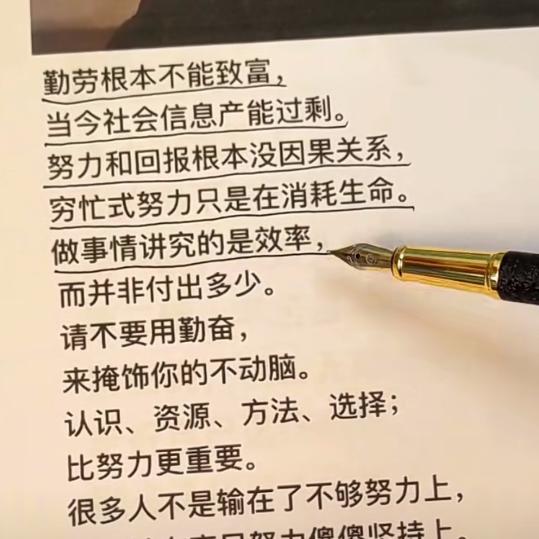 勤劳根本不能致富，
当今社会信息产能过剩。
努力和回报根本没因果关系，
穷忙式努力只是在消耗生命。
做事情讲究的是效率，
而并非付出多少。
请不要用勤奋，
来掩饰你的不动脑。
认识、资源、方法、选择；
比努力更重要。
很多人不是输在了不够努力上，
努力傻傻坚持上。